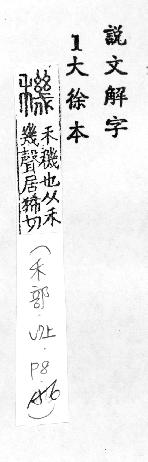 説文解字
1大徐本
禾穖也从禾
幾聲居狶切
(禾部.七上.P8.